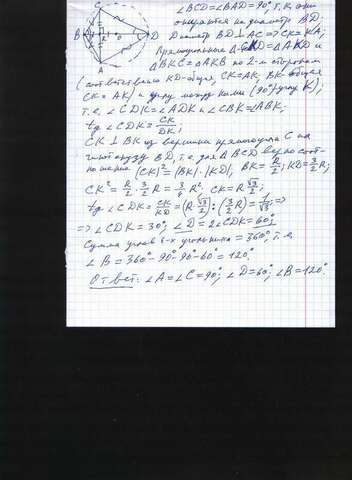 C
B K O D
A
∠BCD=∠BAD=90°, т.к. они
опираются на диаметр BD;
Диаметр BD⊥AC => CK=KA;
Прямоугольные Δ-CKD=ΔAKD и
ΔBKC=ΔAKB по 2-м сторонам
(соответственно KD-общая, CK=AK; BK-общая
CK=AK) и углу между ними (90°-углу K),
т.е. ∠CDK=∠ADK и ∠CBK=∠ABK;
tg∠CDK=CK/DK;
CK⊥BK из вершины прямого угла C на
гипотенузу BD, т.е. для ΔBCD верно соот-
ношение (CK)²=|BK|·|KD|, BK=R/2; KD=3/2R;
CK²=R/2·3/2R=3/4R², CK=R√3/2;
tg∠CDK=CK/KD=(R√3/2):(3/2R)=1/√3; =>
=> ∠CDK=30°; ∠D=2∠CDK=60°
Сумма углов 4-х угольника=360°, т.е.
∠B=360°-90°-90°-60°=120°
Ответ: ∠A=∠C=90°; ∠D=60°, ∠B=120°